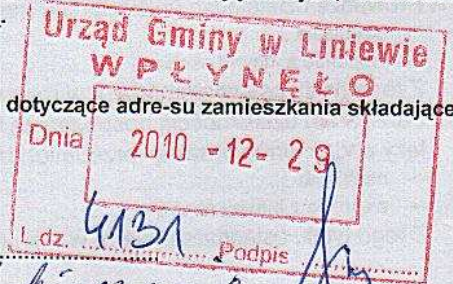 Urząd Gminy w Liniewie
WPŁYNĘŁO
dotyczące adre-su zamieszkania składające
Dnia 2010 -12- 29
L.dz. 4131 Podpis